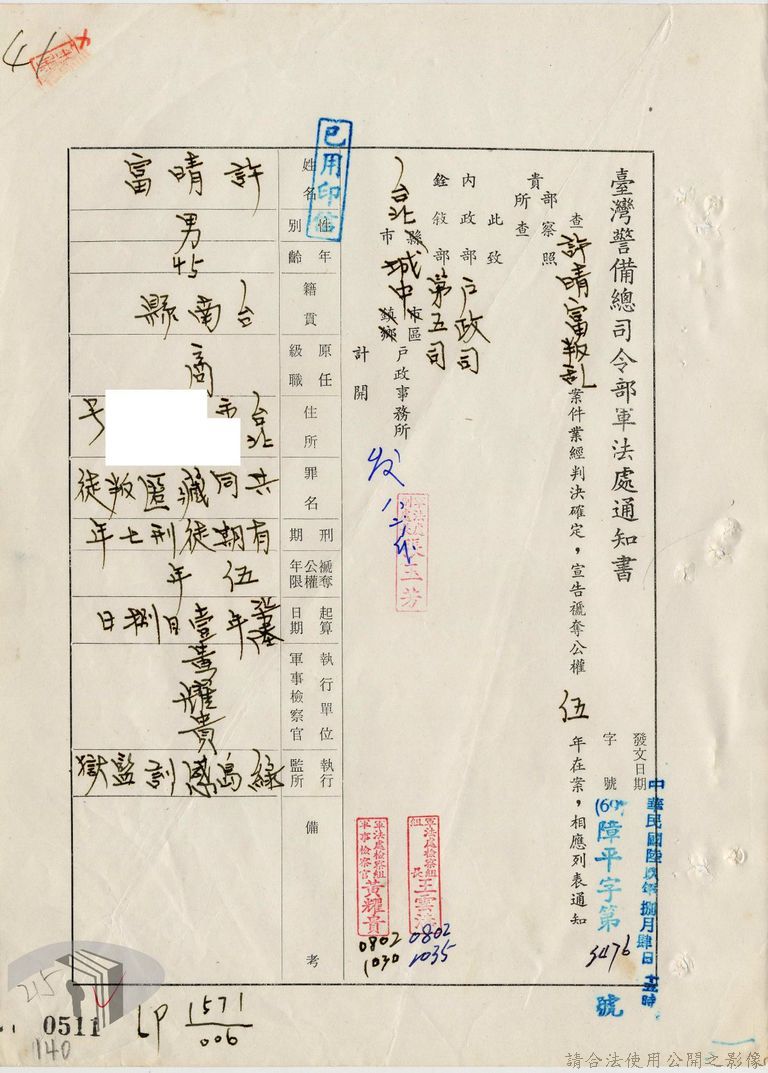 臺灣警備總司令部軍法處通知書
發文日期
中華民國陸玖年捌月肆日
字號
(69)障平字第3476號
查許晴富叛乱案件業經判決確定,宣告褫奪公權伍年在案,相應列表通知
貴部察照
所查
此致
內政部戶政司
銓敘部第五司
台北
縣
市
城中
市區
鎮鄉
戶政事務所
計開
已用印信
发
姓名
許晴富
性別
男
年齡
45
籍貫
台南縣
原任級職
商
住所
台北市
号
罪名
共同藏匿叛徒
刑期
有期徒刑七年
褫奪公權年限
伍年
起算日期
年壹月捌日
執行單位軍事檢察官
黃耀貴
執行監所
綠島感訓監獄
備考
軍法處檢察組
組長王雲濤
0802
1035
軍法處檢察組
軍事檢察官黃耀貴
0802
1030
215
0511
140
LP 1571
006
請合法使用公開之影像